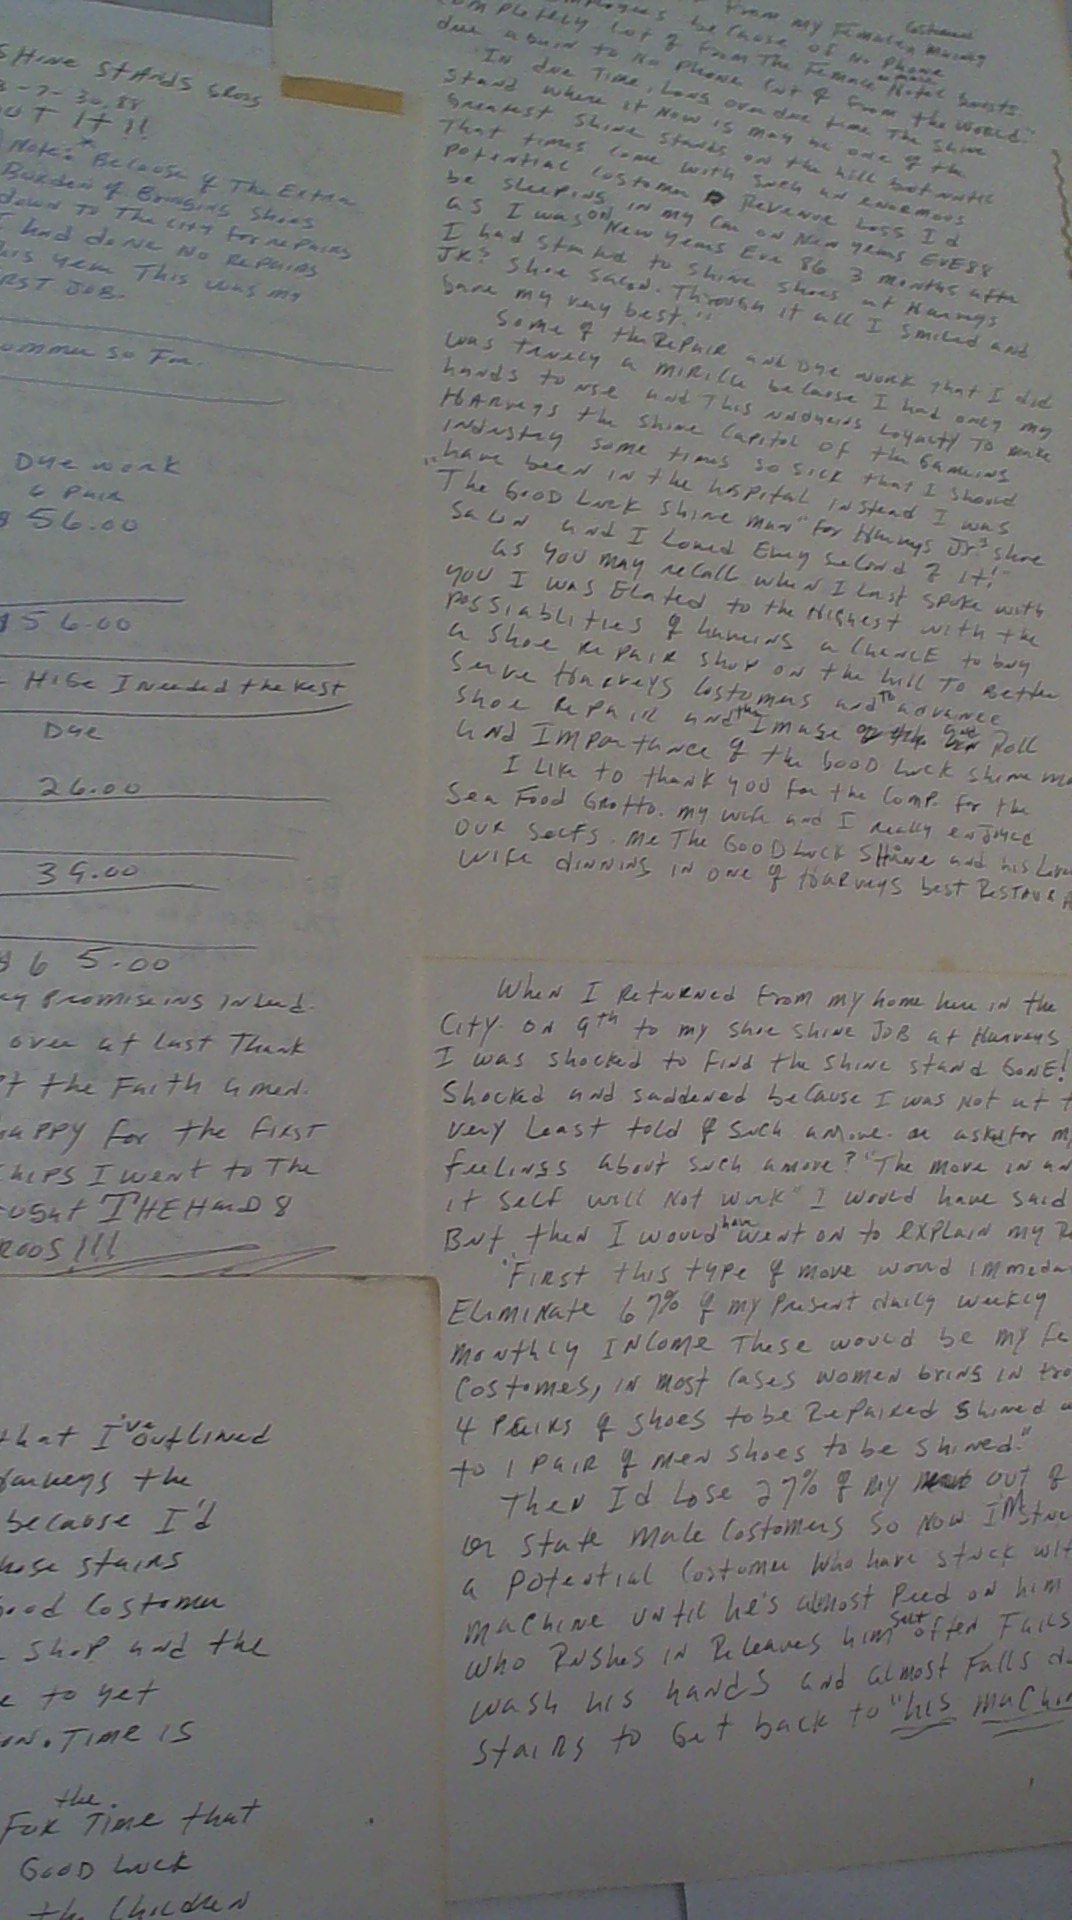 SHINE STANDS GROSS
8-7-30, 88
OUT IT!!
Note:* Because of The Extra
Burden of Bringing Shoes
down To The City for repairs
I had done No Repairs
this year This was my
FIRST JOB.
Summer so Far.
Dye work
6 Pair
$56.00
$56.00
HIGE I Needed the Rest
Dye
26.00
39.00
$65.00
Promiseing Indeed.
over at Last Thank
the Faith amen.
happy for the first
I went to The
THE HARD 8
ROOS!!!
that I've outlined
Harveys the
because I'd
those stairs
good Costomer
Shop and the
to get
Time is
For the Time that
GOOD Luck
the Children
From my Female
Employees because of No Phone
Completely Cut of From The Female Hotel Guests
due again to No Phone Cut of From the World."
In due Time, Long overdue time The Shine
Stand where it Now is may be one of the
Greatest Shine Stands on the hill but until
That times come with such an enormous
Potential Costomer Revenue Loss I'd
be sleeping in my Car on New years EVE 88
as I was on New years Eve 86 3 months after
I had started to Shine Shoes at Harveys
JR? Shoe Salon. Through it all I smiled and
gave my very best."
Some of the Repair and Dye work that I did
was truely a miricle because I had only my
hands to use and This undying Loyalty To make
HARveys the Shine Capitol of the Gameing
Industry some times so sick that I should
have been in the hospital instead I was
"The Good Luck Shine man" for Harveys Jr? Shoe
Salon and I Loved Every second of it!"
as you may recall when I Last spoke with
you I was Elated to the Highest with the
Possiablities of haveing a Chance to buy
a Shoe Repair Shop on the hill To Better
Serve Harveys Costomers and To advance
Shoe Repair and the Image and Roll
and Importance of the GOOD Luck Shine man
I Like to thank you for the Comp. for the
Sea Food Grotto. my wife and I really enjoyed
our selfs. me The GOOD Luck SHINE and his Lovely
Wife dinning in one of HARveys best RESTAURA
When I Returned From my home here in the
City on 9th to my shoe shine Job at Harveys
I was shocked to find the shine stand GONE!
Shocked and saddened because I was not at t
very Least told of such a move. or asked for my
feelings about such a move? "The move in an
it self will Not work" I would have said
But then I would have went on to explain my Re
"First this type of move would immedia
Eliminate 67% of my Present daily weekly
monthly Income These would be my Fe
Costomes, in most Cases women bring in
4 Pairs of shoes to be Repaired Shined
to 1 Pair of men shoes to be shined."
Then I'd Lose 27% of my out of
or State male Costomers So now I'm
a Potential Costomer Who have stuck wit
machine until he's almost Peed on him
who Rushes in Releaves him self often Fails
wash his hands and almost Falls do
stairs to Get back to "his machin